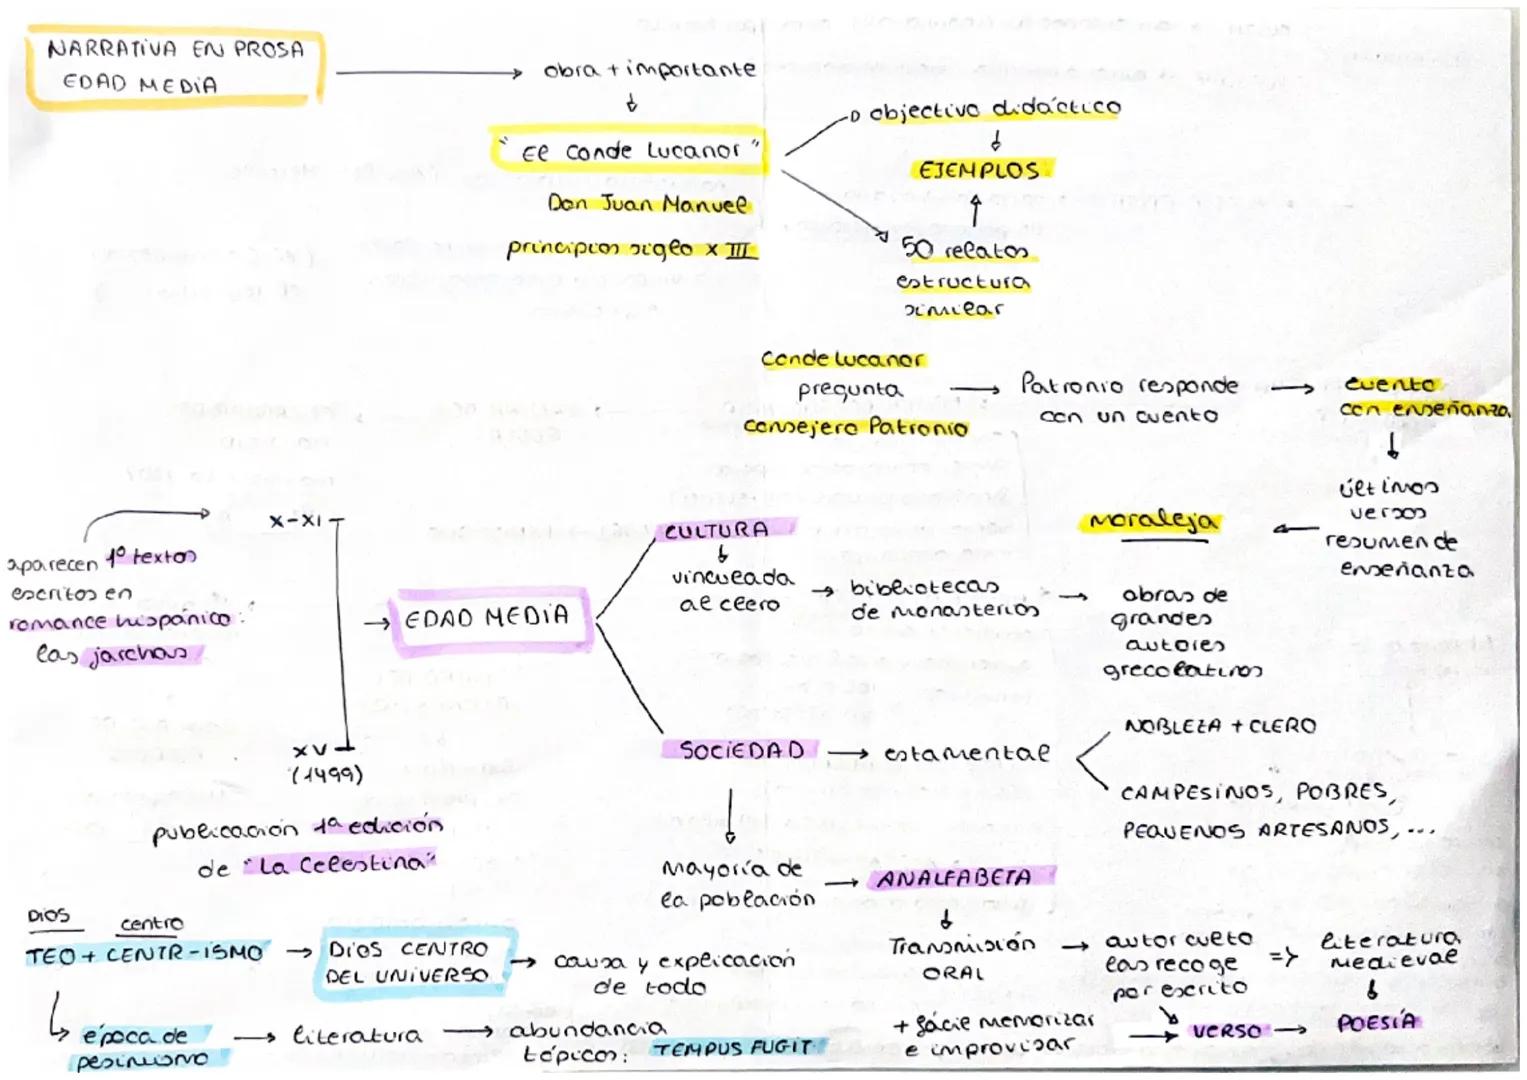 NARRATIVA EN PROSA
EDAD MEDIA
obra + importante
"El Conde Lucanor"
Don Juan Manuel
principios siglo XIII
objectivo didáctico
EJEMPLOS
50 relatos
estructura
similar
Conde Lucanor
pregunta
consejero Patronio
Patronio responde
con un cuento
cuento
con enseñanza
últimos
versos
resumen de
enseñanza
moraleja
X-XI
aparecen 1º textos
escritos en
romance hispánico:
las jarchas
XV
(1499)
publicación 1ª edición
de "La Celestina"
EDAD MEDIA
CULTURA
vinculada
al clero
bibliotecas
de monasterios
obras de
grandes
autores
grecolatinos
SOCIEDAD
estamental
NOBLEZA + CLERO
CAMPESINOS, POBRES,
PEQUENOS ARTESANOS, ...
Mayoría de
la población
ANALFABETA
Transmisión
ORAL
autor culto
las recoge
por escrito
=>
literatura
medieval
POESÍA
+ fácil memorizar
e improvisar
VERSO
DIOS
centro
TEO + CENTR-ISMO
DIOS CENTRO
DEL UNIVERSO
causa y explicación
de todo
época de
pesimismo
literatura
abundancia
tópicos: TEMPUS FUGIT